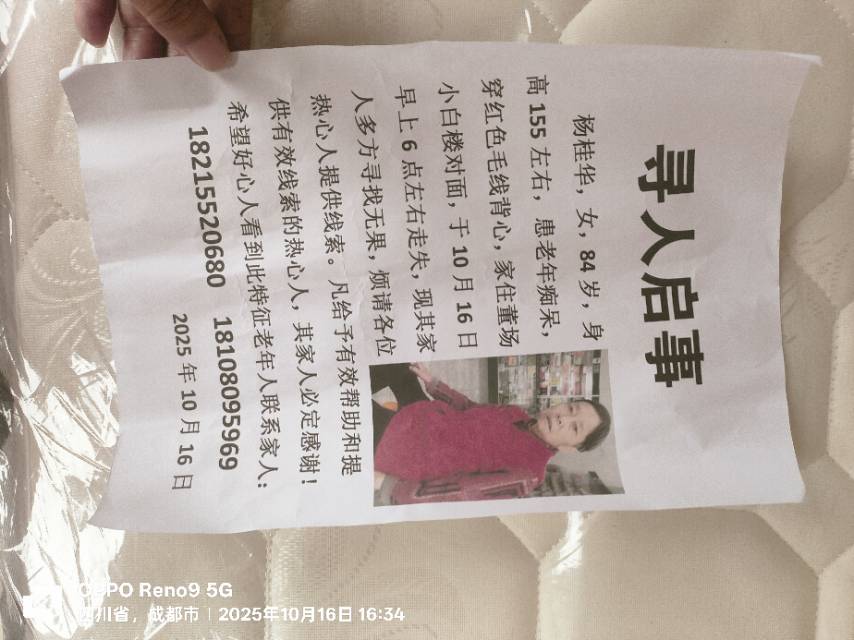 寻人启事
杨桂华，女，84 岁，身
高 155 左右，患老年痴呆，
穿红色毛线背心，家住董场
小白楼对面，于 10 月 16 日
早上 6 点左右走失，现其家
人多方寻找无果，烦请各位
热心人提供线索。凡给予有效帮助和提
供有效线索的热心人，其家人必定感谢！
希望好心人看到此特征老年人联系家人：
18215520680 18108095969
2025 年 10 月 16 日
OPPO Reno9 5G
四川省，成都市 | 2025年10月16日 16:34